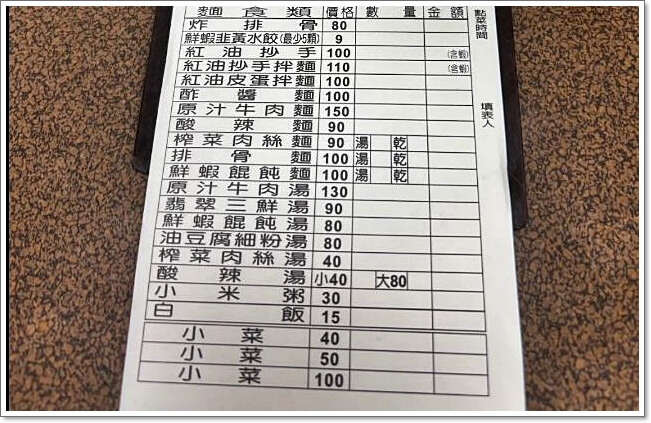 麵食類 價格 數量 金額
炸排骨 80
鮮蝦韭黃水餃(最少5顆) 9
紅油抄手 100 (含蝦)
紅油抄手拌麵 110 (含蝦)
紅油皮蛋拌麵 100
酢醬麵 100
原汁牛肉麵 150
酸辣麵 90
榨菜肉絲麵 90 湯 乾
排骨麵 100 湯 乾
鮮蝦餛飩麵 100 湯 乾
原汁牛肉湯 130
翡翠三鮮湯 90
鮮蝦餛飩湯 80
油豆腐細粉湯 80
榨菜肉絲湯 40
酸辣湯 小40 大80
小米粥 30
白飯 15
小菜 40
小菜 50
小菜 100
點菜時間
填表人